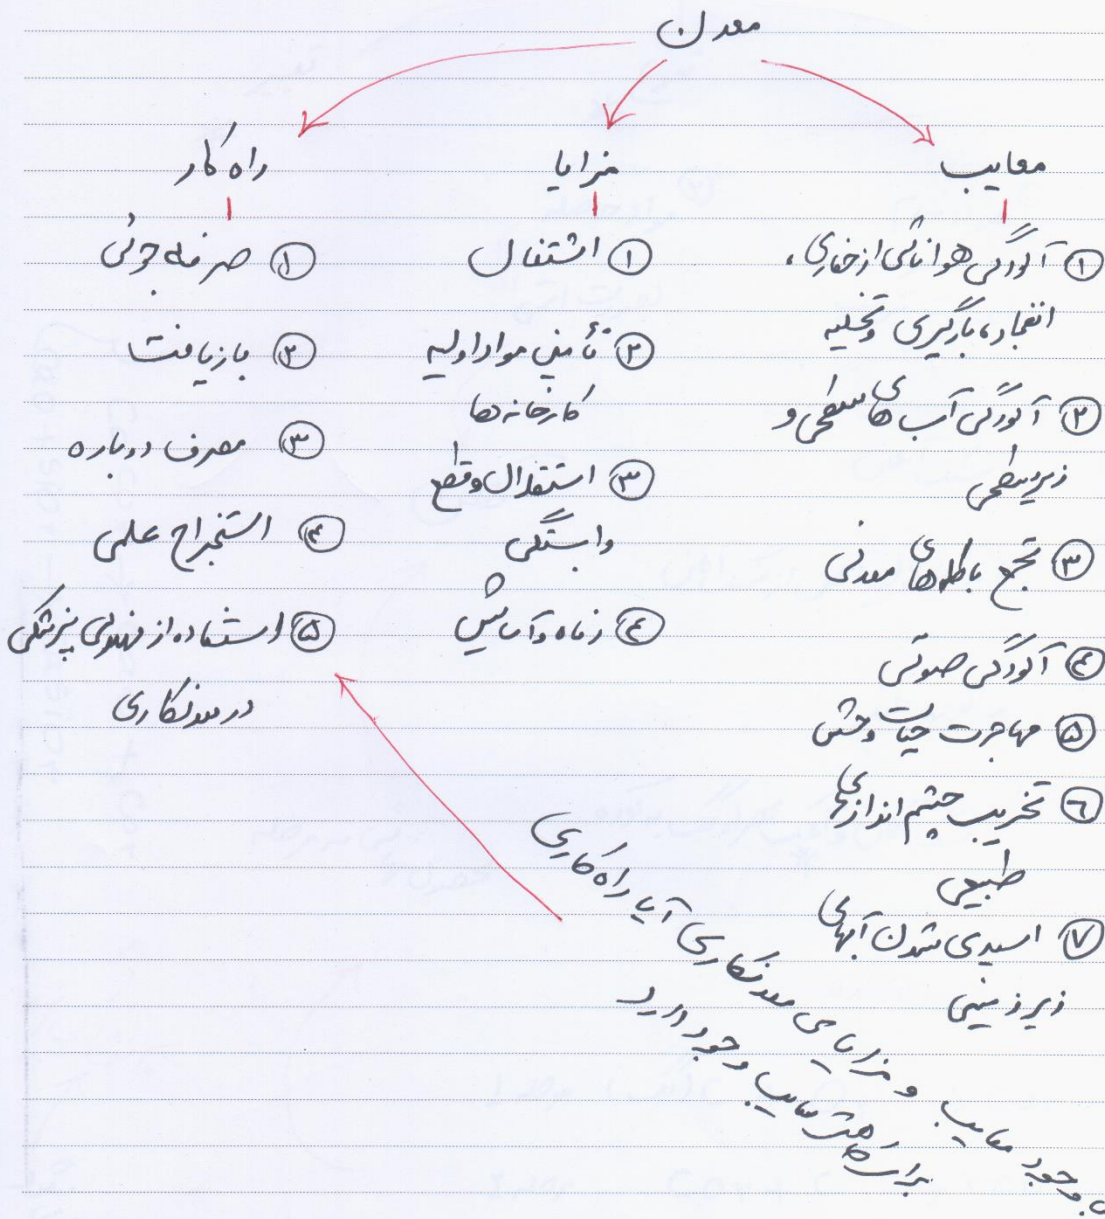 معدن
معایب
① آلودگی هوا ناشی از حفاری،
انفجار، بارگیری و تخلیه
② آلودگی آب های سطحی و
زیرسطحی
③ تجمع باطله های معدنی
④ آلودگی صوتی
⑤ مهاجرت حیات وحش
⑥ تخریب چشم اندازهای
طبیعی
⑦ اسیدی شدن آبهای
زیرزمینی
مزایا
① اشتغال
② تأمین مواد اولیه
کارخانه ها
③ استقلال و قطع
وابستگی
④ رفاه و آسایش
راه کار
① صرفه جوئی
② بازیافت
③ مصرف دوباره
④ استخراج علمی
⑤ استفاده از پزشکی
در معدنکاری
وجود معایب و مزایای معدنکاری آیا راه کاری
برای کاهش معایب وجود دارد